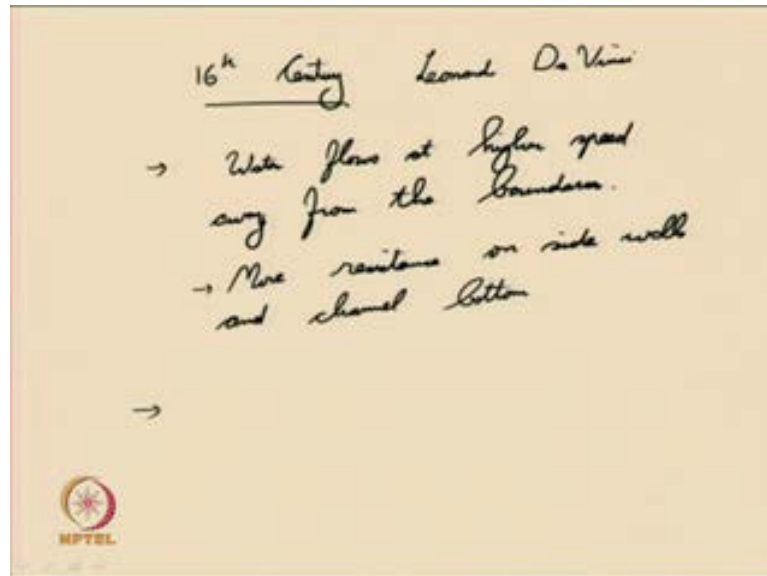 16th Century Leonard Da Vinci
→ Water flows at higher speed
away from the boundaries.
→ More resistance on side walls
and channel bottom
→
NPTEL